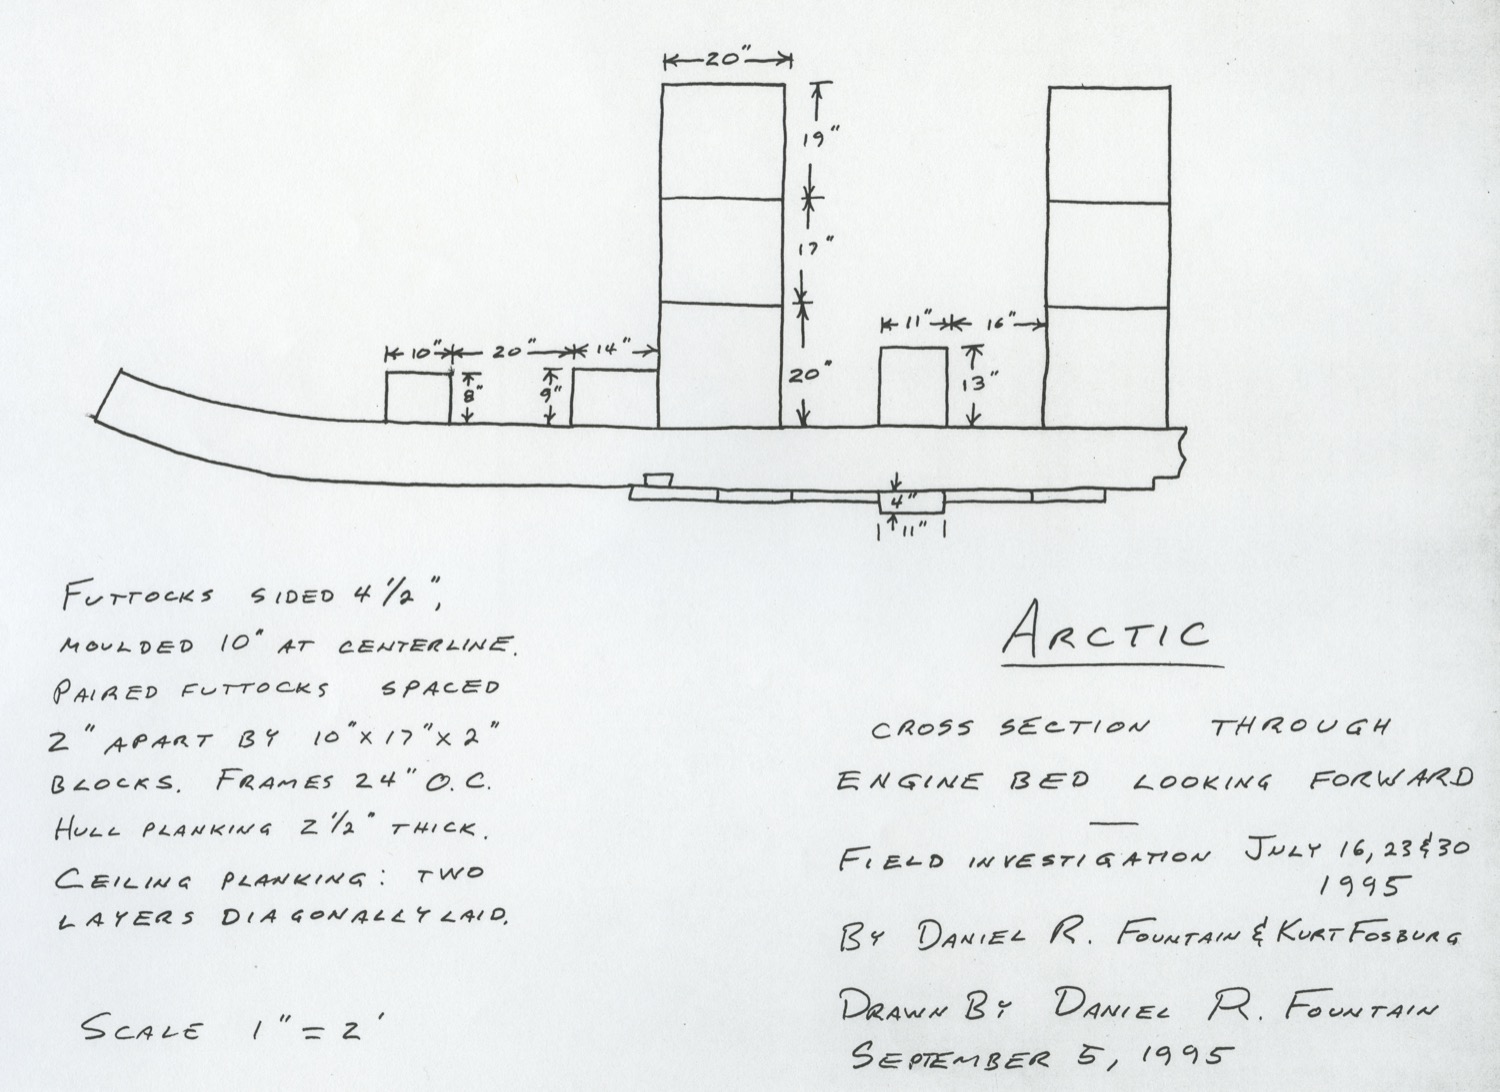 20"
19"
17"
20"
10"
20"
14"
8"
9"
11"
16"
13"
4"
11"
FUTTOCKS SIDED 4 1/2",
MOULDED 10" AT CENTERLINE.
PAIRED FUTTOCKS SPACED
2" APART BY 10"X17"X2"
BLOCKS. FRAMES 24" O.C.
HULL PLANKING 2 1/2" THICK.
CEILING PLANKING: TWO
LAYERS DIAGONALLY LAID.
SCALE 1" = 2'
ARCTIC
CROSS SECTION THROUGH
ENGINE BED LOOKING FORWARD
FIELD INVESTIGATION JULY 16, 23 & 30
1995
BY DANIEL R. FOUNTAIN & KURT FOSBURG
DRAWN BY DANIEL R. FOUNTAIN
SEPTEMBER 5, 1995